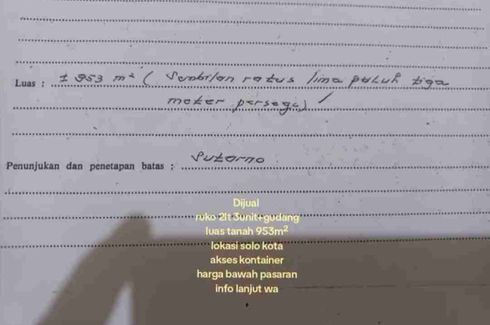 Luas : ± 953 m² ( Sembilan ratus lima puluh tiga
meter persegi )
Penunjukan dan penetapan batas : Sutarno
Dijual
ruko 2lt 3unit+gudang
luas tanah 953m²
lokasi solo kota
akses kontainer
harga bawah pasaran
info lanjut wa